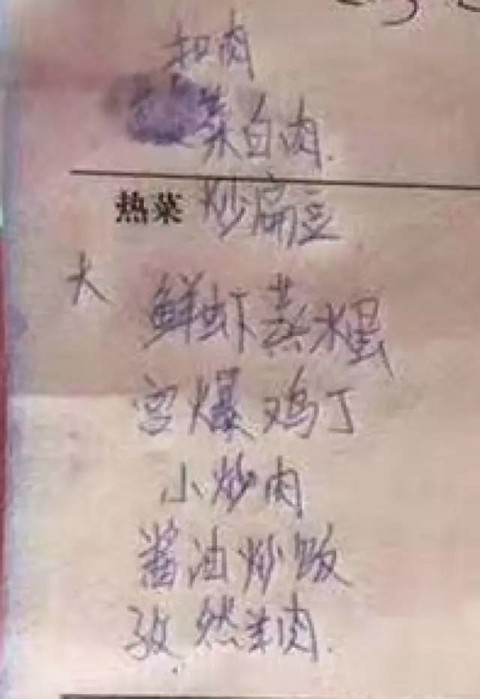 扣肉
菜白肉.
热菜 炒扁豆
大 鲜虾蒸水蛋
宫爆鸡丁
小炒肉
酱油炒饭
孜然羊肉.